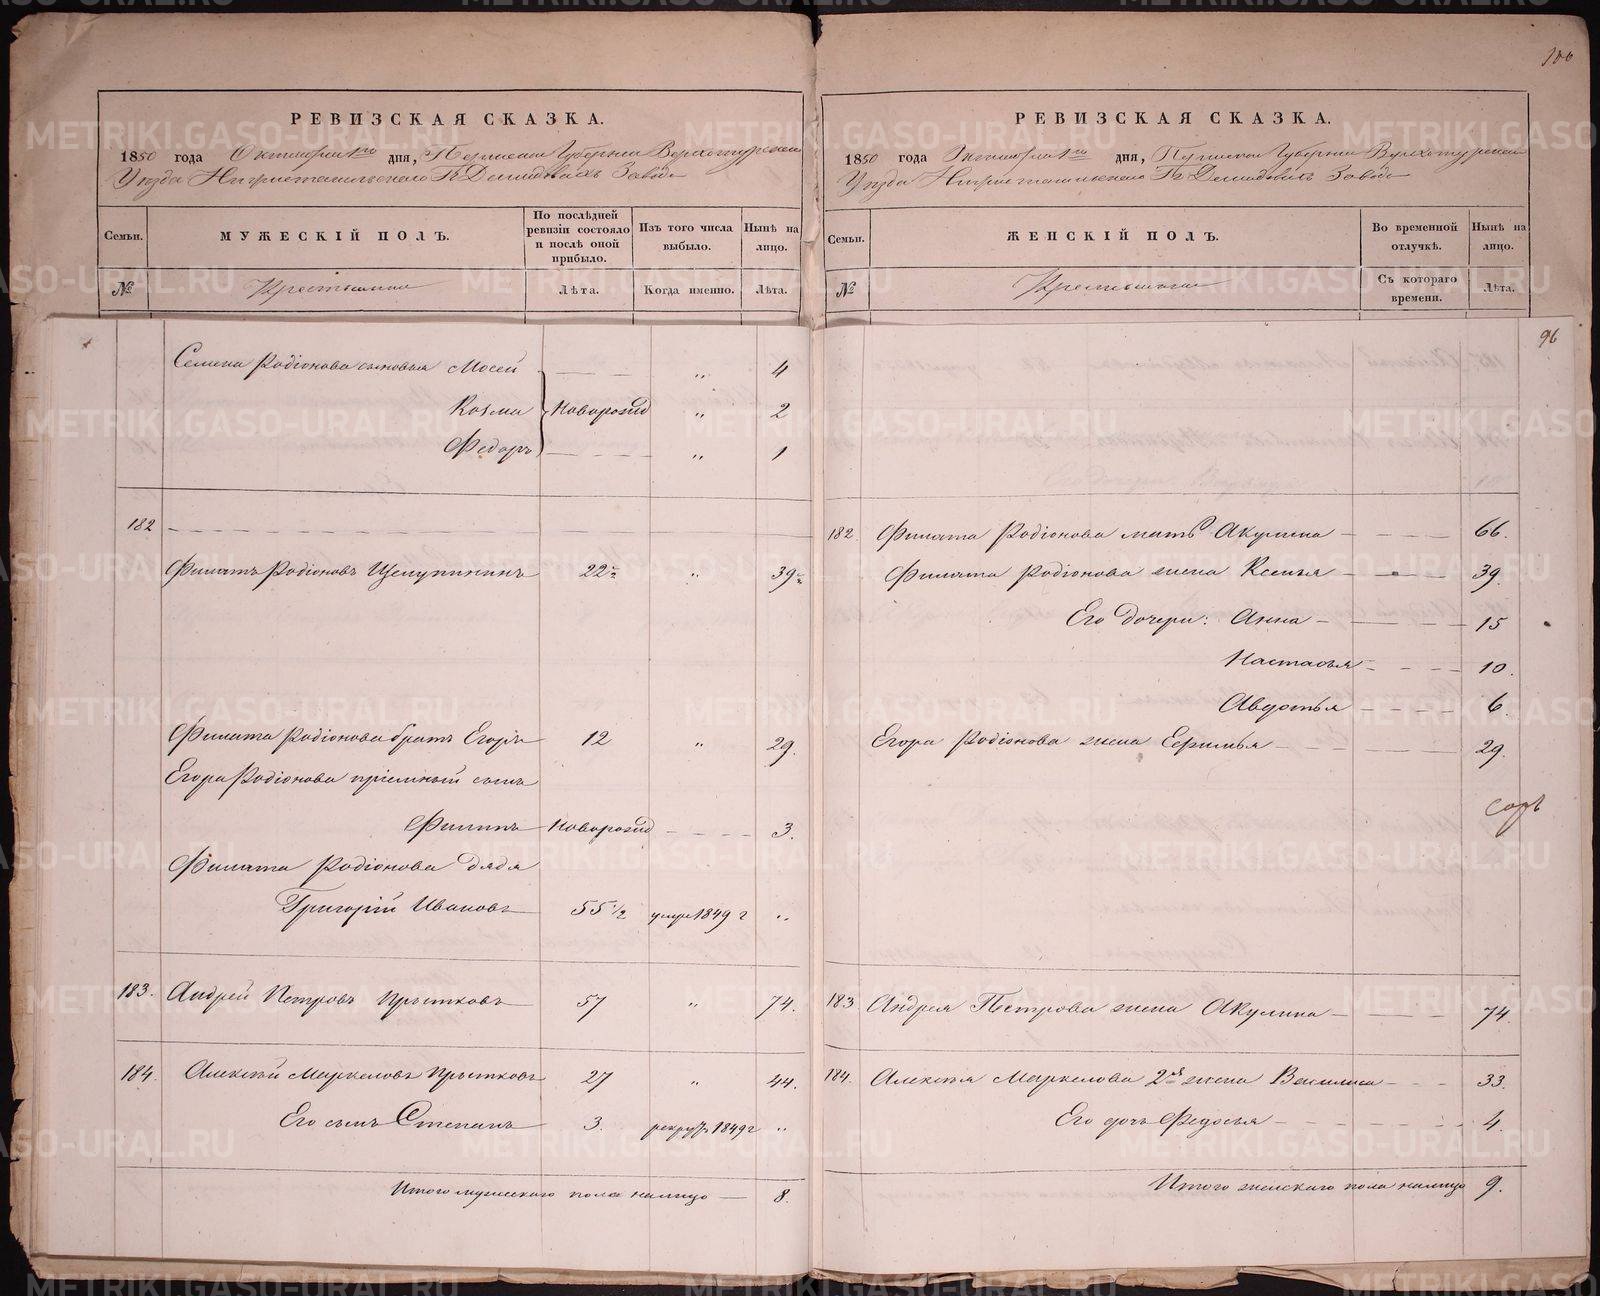 106
РЕВИЗСКАЯ СКАЗКА.
1850 года Октября 1го дня, Пермской Губернии Верхотурскаго
Уезда Нижнетагильскаго Гг Демидовыхъ Завода
Семьи. МУЖЕСКІЙ ПОЛЪ. По послѣдней ревизіи состояло и послѣ оной прибыло. Изъ того числа выбыло. Нынѣ на лицо.
№ Крестьянии Лѣта. Когда именно. Лѣта.
Семена Родіонова сыновья Мосей — " 4
Козма новорожд " 2
Федоръ — " 1
182
Филатъ Родіоновъ Щелупининъ 22½ " 39½
Филата Родіонова братъ Егоръ 12 " 29.
Егора Родіонова пріемный сынъ
Филипъ новорожд — 3.
Филата Родіонова дядя
Григорій Ивановъ 55 1/2 умре 1849 г "
183. Андрей Петровъ Прытковъ 57 " 74.
184. Алексѣй Маркеловъ Прытковъ 27 " 44.
Его сынъ Степанъ 3. рекрут 1849 г "
Итого мужескаго пола налицо — 8.
РЕВИЗСКАЯ СКАЗКА.
1850 года Октября 1го дня, Пермской Губернии Верхотурскаго
Уезда Нижнетагильскаго Гг Демидовыхъ Завода
Семьи. ЖЕНСКІЙ ПОЛЪ. Во временной отлучкѣ. Нынѣ на лицо.
№ Крестьянии Съ котораго времени. Лѣта.
96
182. Филата Родіонова мать Акулина — 66.
Филата Родіонова жена Ксенья — 39.
Его дочери: Анна — 15
Настасья — 10.
Авдотья — 6.
Егора Родіонова жена Ефимья — 29.
183 Андрея Петрова жена Акулина — 74.
184. Алексѣя Маркелова 2я жена Василиса — 33.
Его дочь Федосья — 4.
Итого женскаго пола налицо 9.
METRIKI.GASO-URAL.RU